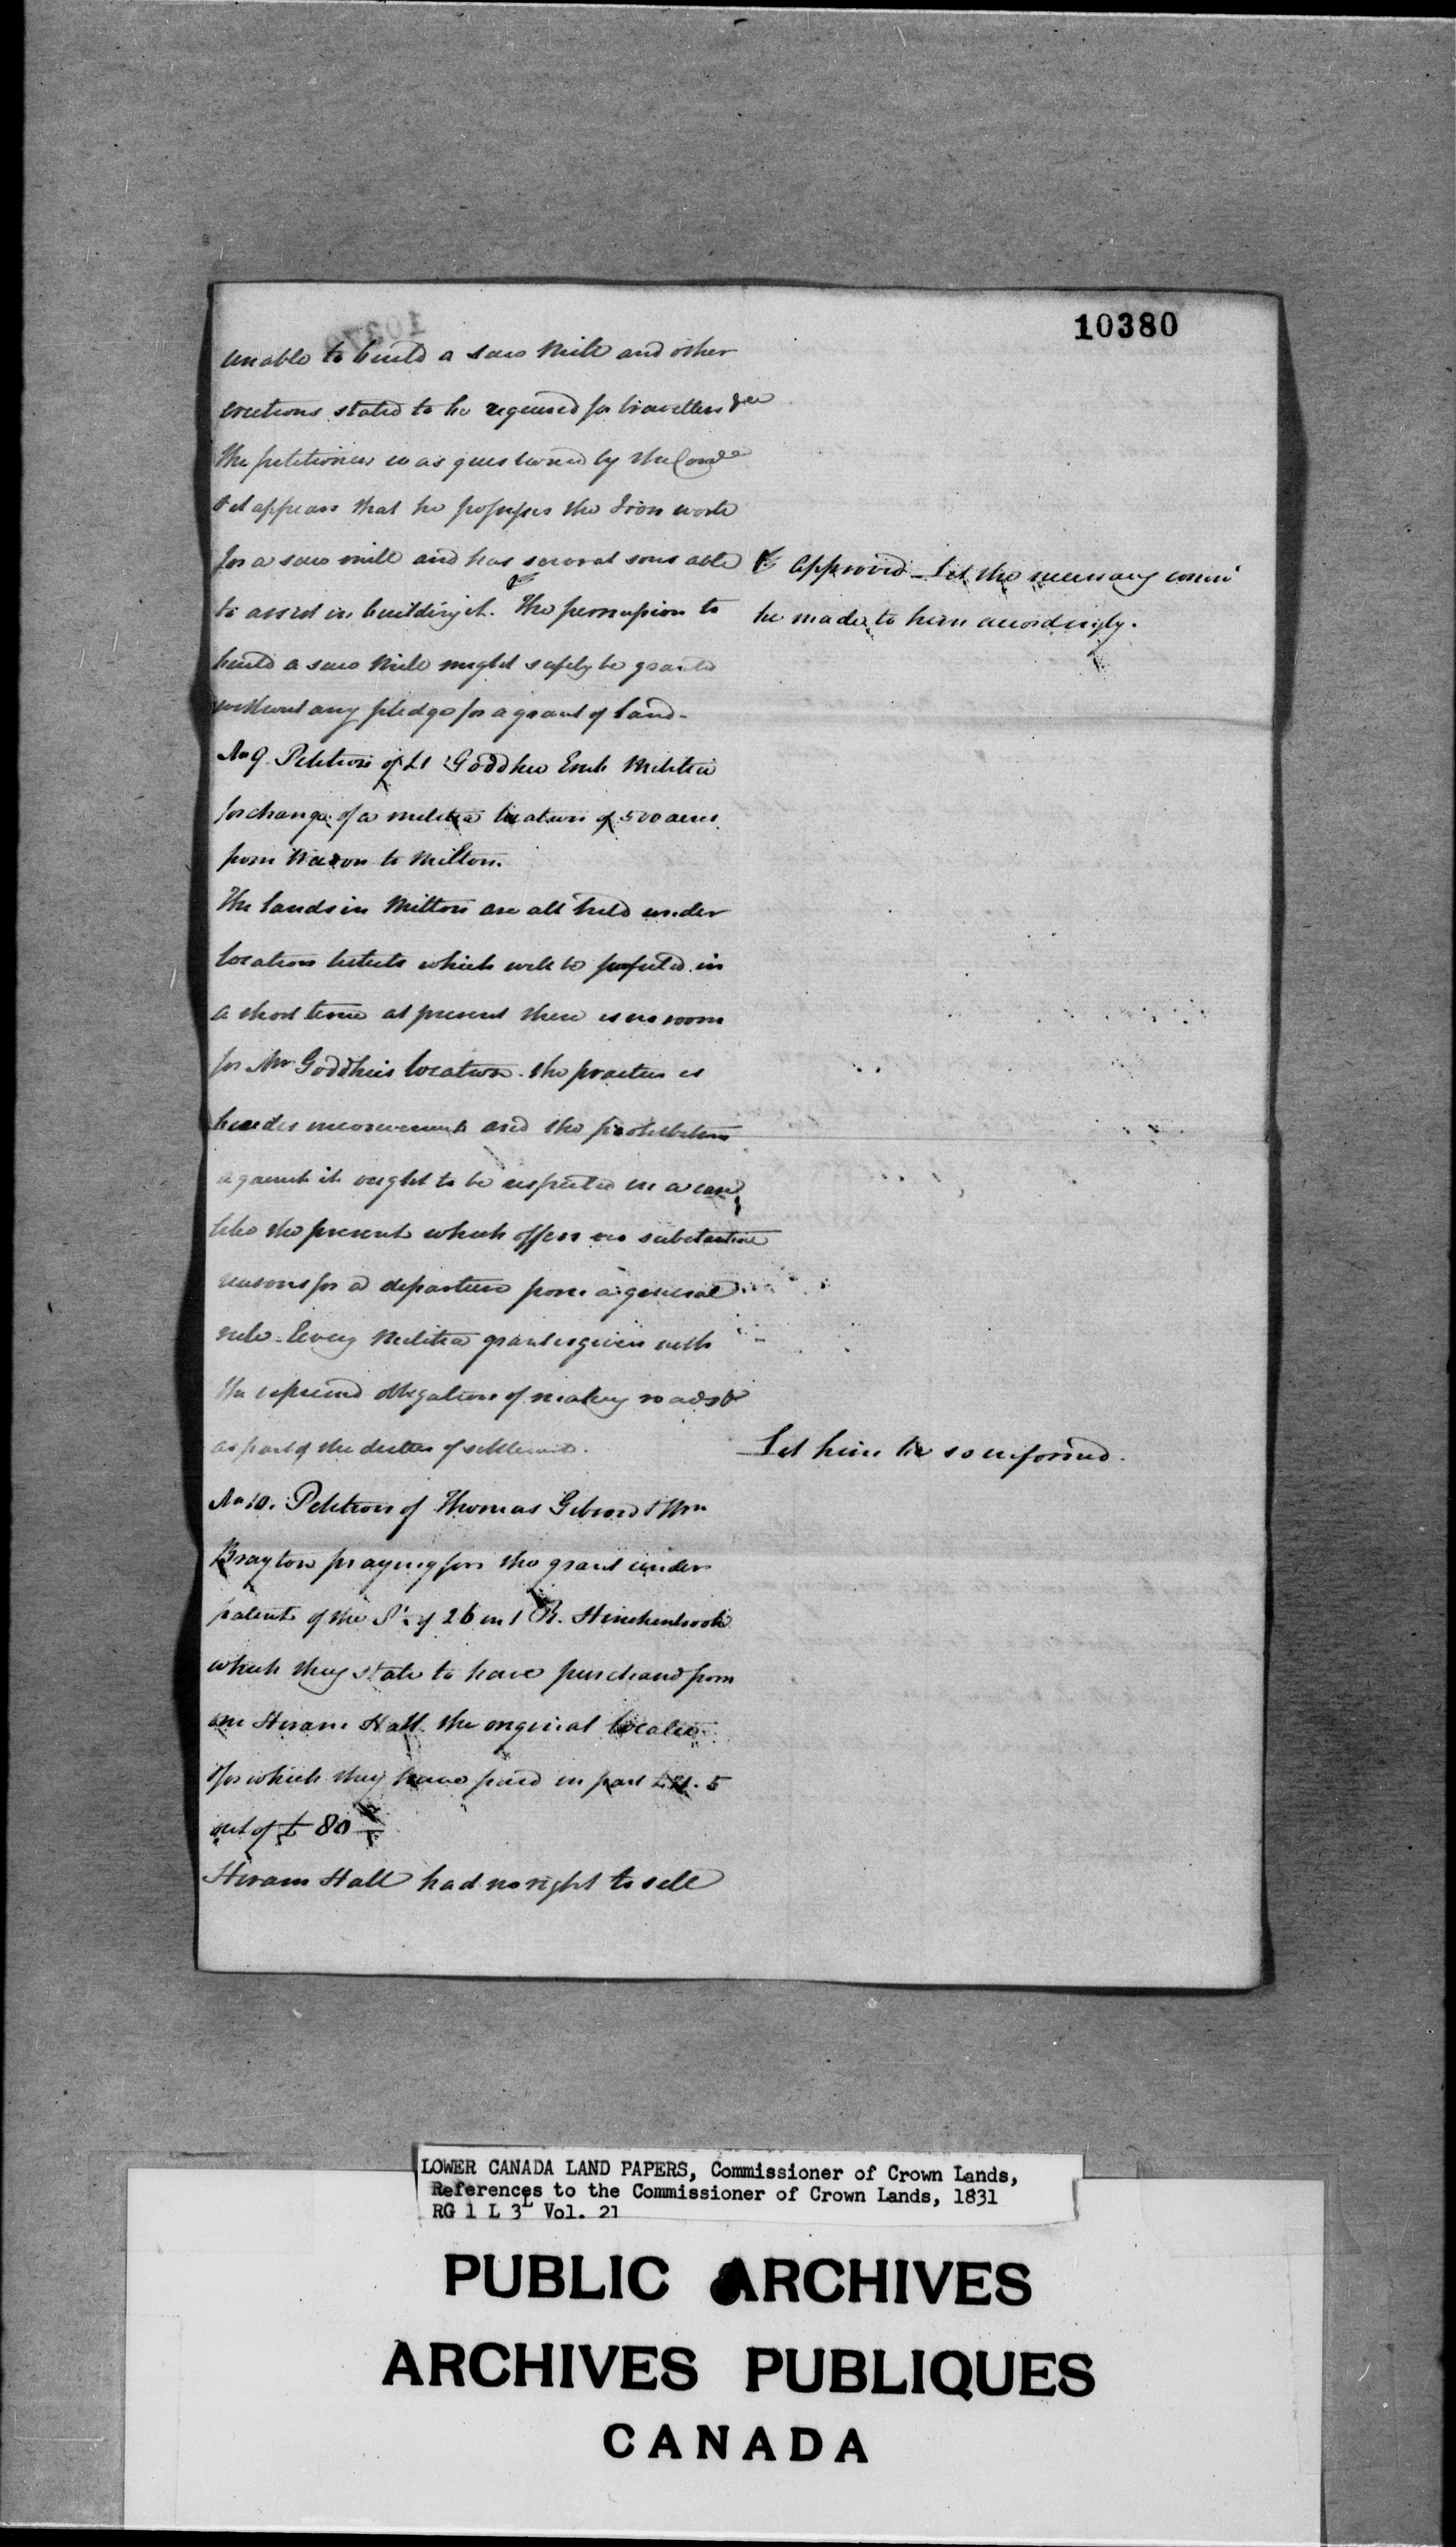 10380
unable to build a saw Mill and other
erections stated to be required for travellers &ca
The petitioner was questioned by the Com^ee
& it appears that he possesses the Iron work
for a saw mill and has several sons able
to assist in building it. The permission to
build a saw Mill might safely be granted
without any pledge for a grant of land.
Approved - Let the necessary comn
be made to him accordingly.
No 9. Petition of Lt Goddhue Emb Militia
for change of a militia location of 500 acres
from to Milton.
The lands in Milton are all held under
location tickets which will be perfected in
a short time at present there is no room
for Mr Goddhue's location. the practice is
besides inconvenient and the prohibition
against it ought to be respected in a case
like the present which offers no substantive
reasons for a departure from a general
rule. Every Militia grant is given with
the expressed obligation of making roads &
as part of the duties of settlement.
Let him be so informed.
No 10. Petition of Thomas Gibson & Wm
Brayton praying for the grant under
patent of the S ½ of 26 in 1 R. Hinchenbrook
which they state to have purchased from
one Hiram Hall the original locatee
& for which they have paid in part 5
out of £ 80
Hiram Hall had no right to sell
LOWER CANADA LAND PAPERS, Commissioner of Crown Lands,
References to the Commissioner of Crown Lands, 1831
RG 1 L 3L Vol. 21
PUBLIC ARCHIVES
ARCHIVES PUBLIQUES
CANADA